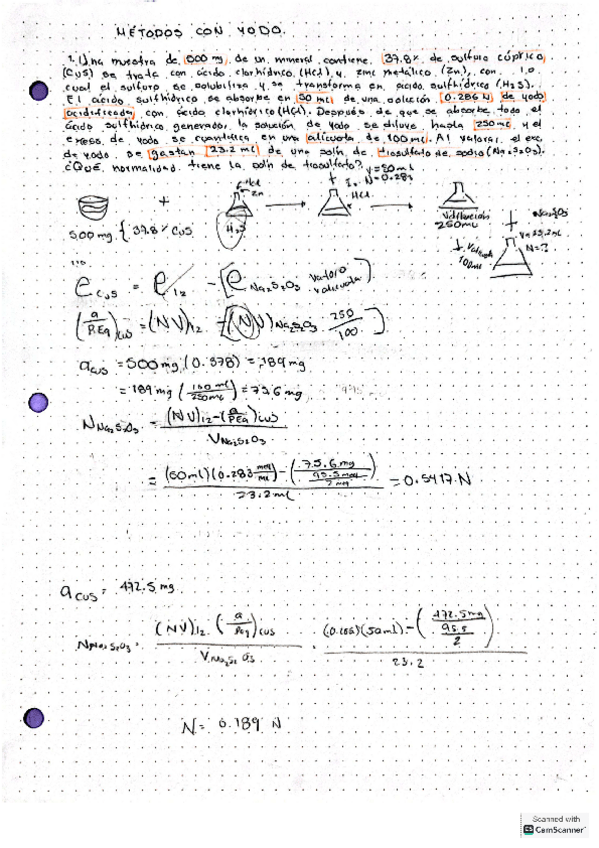 MÉTODOS CON YODO.
1. Una muestra de 500 mg de un mineral contiene 37.8% de sulfuro cúprico
(CuS) se trata con ácido clorhídrico (HCl) y zinc metálico (Zn), con lo
cual el sulfuro se solubiliza y se transforma en ácido sulfhídrico (H2S).
El ácido sulfhídrico se absorbe en 50 ml de una solución de yodo
acidificada con ácido clorhídrico (HCl). Después de que se absorbe todo el
ácido sulfhídrico generado, la solución de yodo se diluye hasta 250 ml y el
exceso de yodo se cuantifica en una alícuota de 100 ml. Al valorar el exc
de yodo se gastan 23.2 ml de una soln de tiosulfato de sodio (Na2S2O3).
¿Qué normalidad tiene la soln de tiosulfato?
V=50ml
+ I2
HCl
Zn
HCl
H2S
500 mg { 37.8% CuS
250ML
+ Na2S2O3
V=23.2ml
N=?
100ml
e CuS = e I2 - [e Na2S2O3 valoro alícuota]
(a/PEq)CuS = (NV)I2 - [(NV)Na2S2O3 250/100]
aCuS = 500mg (0.378) = 189 mg
= 189 mg (100 ml/250ml) = 75.6 mg
N Na2S2O3 = (NV)I2-(a/PEq)CuS / V Na2S2O3
= (50ml)(0.283 meq/ml) - (75.6 mg / 95.5 / 2) / 23.2ml = 0.5417 N
aCuS = 472.5 mg
N Na2S2O3 = (NV)I2 - (a/Peq)CuS / V Na2S2O3 (50ml) - (472.5mg / 95.5 / 2) / 23.2
N = 0.189 N
Scanned with
CamScanner